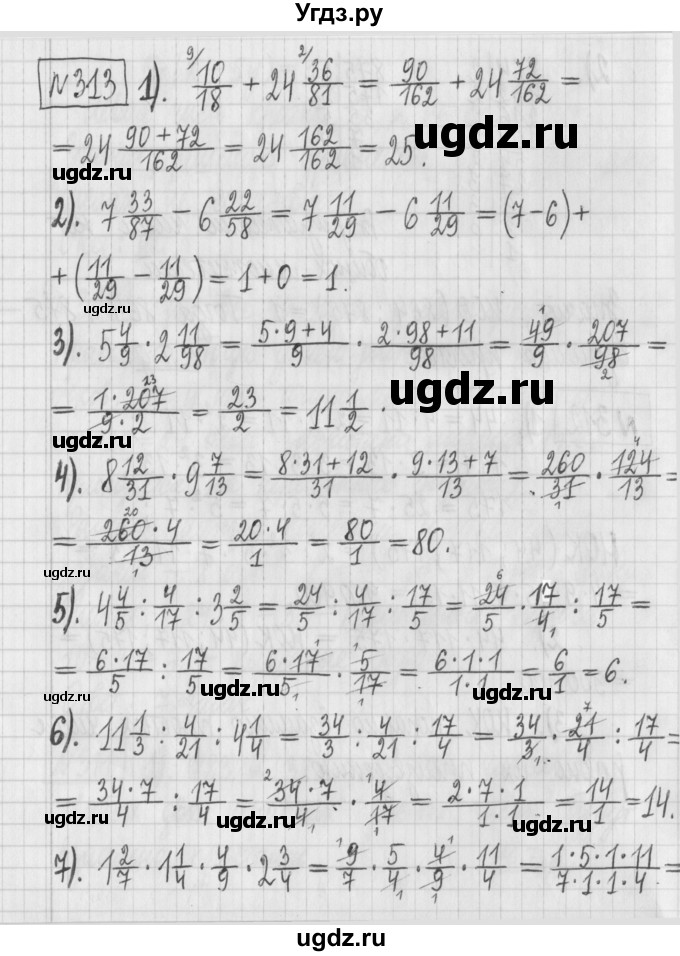 Угдз.ру
№313 1). 9/ 10/18 + 24 2/ 36/81 = 90/162 + 24 72/162 =
= 24 (90+72)/162 = 24 162/162 = 25.
ugdz.ru
ugdz.ru
2). 7 33/87 − 6 22/58 = 7 11/29 − 6 11/29 = (7−6)+
+ (11/29 − 11/29) = 1+0 = 1.
ugdz.ru
3). 5 4/9 · 2 11/98 = (5·9+4)/9 · (2·98+11)/98 = 49/9 · 207/98 =
ugdz.ru
= (1·207)/(9·2) = 23/2 = 11 1/2.
ugdz.ru
4). 8 12/31 · 9 7/13 = (8·31+12)/31 · (9·13+7)/13 = 260/31 · 124/13 =
= (260·4)/13 = (20·4)/1 = 80/1 = 80.
ugdz.ru
5). 4 4/5 : 4/17 : 3 2/5 = 24/5 : 4/17 : 17/5 = 24/5 · 17/4 : 17/5 =
= (6·17)/5 : 17/5 = (6·17)/5 · 5/17 = (6·1·1)/(1·1) = 6/1 = 6.
ugdz.ru ugdz.ru ugdz.ru
6). 11 1/3 : 4/21 : 4 1/4 = 34/3 : 4/21 : 17/4 = 34/3 · 21/4 : 17/4 =
= (34·7)/4 : 17/4 = (34·7)/4 · 4/17 = (2·7·1)/(1·1) = 14/1 = 14.
ugdz.ru ugdz.ru ugdz.ru
7). 1 2/7 · 1 1/4 · 4/9 · 2 3/4 = 9/7 · 5/4 · 4/9 · 11/4 = (1·5·1·11)/(7·1·1·4) =
ugdz.ru
ugdz.ru